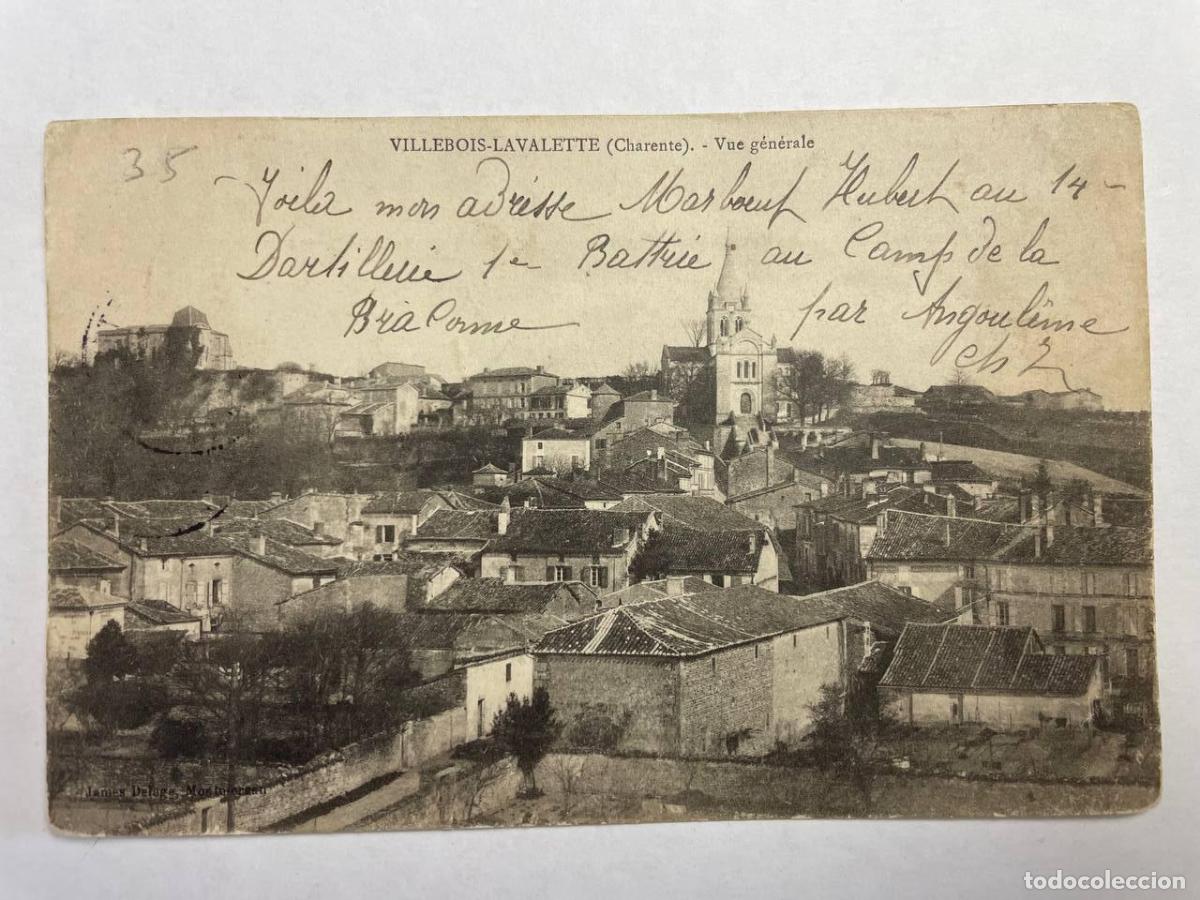 VILLEBOIS-LAVALETTE (Charente). - Vue générale
35
Voila mon adrèsse Marboeuf Hubert au 14
Dartillerie 1e Battrie au Camp de la
Bra Conne par Angoulême
Ch
James Delage, Montmoreau
todocoleccion